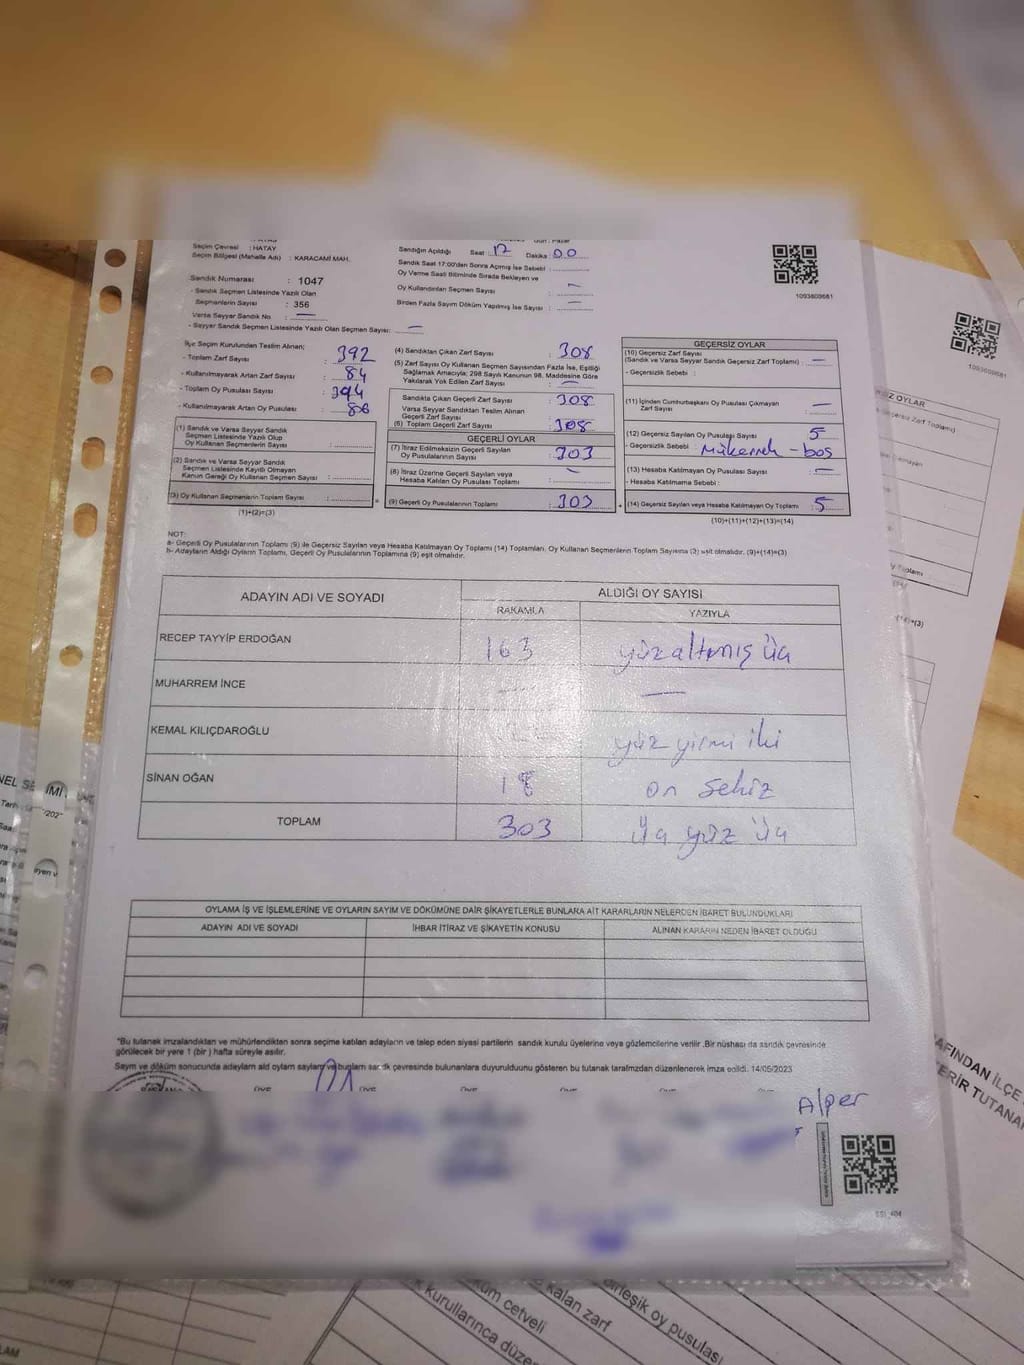 Seçim Çevresi : HATAY
Seçim Bölgesi (Mahalle Adı) : KARACAMİ MAH.
Sandık Numarası : 1047
- Sandık Seçmen Listesinde Yazılı Olan
Seçmenlerin Sayısı : 356
Varsa Seyyar Sandık No. : —
- Sayyar Sandık Seçmen Listesinde Yazılı Olan Seçmen Sayısı: —
Sandığın Açıldığı Saat 17 Dakika 00
Sandık Saat 17:00'den Sonra Açımış İse Sebebi :
Oy Verme Saati Bitiminde Sırada Bekleyen ve
Oy Kullandırılan Seçmen Sayısı : —
Birden Fazla Sayım Döküm Yapılmış İse Sayısı : —
1093609681
İlçe Seçim Kurulundan Teslim Alınan;
- Toplam Zarf Sayısı : 392
- Kullanılmayarak Artan Zarf Sayısı : 84
- Toplam Oy Pusulası Sayısı : 394
- Kullanılmayarak Artan Oy Pusulası : 86
(1) Sandık ve Varsa Seyyar Sandık
Seçmen Listesinde Yazılı Olup
Oy Kullanan Seçmenlerin Sayısı :
(2) Sandık ve Varsa Seyyar Sandık
Seçmen Listesinde Kayıtlı Olmayan
Kanun Gereği Oy Kullanan Seçmen Sayısı :
(3) Oy Kullanan Seçmenlerin Toplam Sayısı :
(1)+(2)=(3)
(4) Sandıktan Çıkan Zarf Sayısı : 308
(5) Zarf Sayısı Oy Kullanan Seçmen Sayısından Fazla İse, Eşitliği
Sağlamak Amacıyla; 298 Sayılı Kanunun 98. Maddesine Göre
Yakılarak Yok Edilen Zarf Sayısı : —
Sandıkta Çıkan Geçerli Zarf Sayısı : 308
Varsa Seyyar Sandıktan Teslim Alınan
Geçerli Zarf Sayısı : —
(6) Toplam Geçerli Zarf Sayısı : 308
GEÇERLİ OYLAR
(7) İtiraz Edilmeksizin Geçerli Sayılan
Oy Pusulalarının Sayısı : 303
(8) İtiraz Üzerine Geçerli Sayılan veya
Hesaba Katılan Oy Pusulaları Toplamı : —
(9) Geçerli Oy Pusulalarının Toplamı : 303
GEÇERSİZ OYLAR
(10) Geçersiz Zarf Sayısı
(Sandık ve Varsa Seyyar Sandık Geçersiz Zarf Toplamı) : —
- Geçersizlik Sebebi :
(11) İçinden Cumhurbaşkanı Oy Pusulası Çıkmayan
Zarf Sayısı : —
(12) Geçersiz Sayılan Oy Pusulası Sayısı : 5
- Geçersizlik Sebebi : Mükerreh - boş
(13) Hesaba Katılmayan Oy Pusulası Sayısı : —
- Hesaba Katılmama Sebebi :
(14) Geçersiz Sayılan veya Hesaba Katılmayan Oy Toplamı : 5
(10)+(11)+(12)+(13)=(14)
NOT:
a- Geçerli Oy Pusulalarının Toplamı (9) ile Geçersiz Sayılan veya Hesaba Katılmayan Oy Toplamı (14) Toplamları, Oy Kullanan Seçmenlerin Toplam Sayısına (3) eşit olmalıdır. (9)+(14)=(3)
b- Adayların Aldığı Oyların Toplamı, Geçerli Oy Pusulalarının Toplamına (9) eşit olmalıdır.
ADAYIN ADI VE SOYADI
ALDIĞI OY SAYISI
RAKAMLA YAZIYLA
RECEP TAYYİP ERDOĞAN 163 yüzaltmış üç
MUHARREM İNCE — —
KEMAL KILIÇDAROĞLU yüz yirmi iki
SİNAN OĞAN 18 on sekiz
TOPLAM 303 üç yüz üç
OYLAMA İŞ VE İŞLEMLERİNE VE OYLARIN SAYIM VE DÖKÜMÜNE DAİR ŞİKAYETLERLE BUNLARA AİT KARARLARIN NELERDEN İBARET BULUNDUKLARI
ADAYIN ADI VE SOYADI İHBAR İTİRAZ VE ŞİKAYETİN KONUSU ALINAN KARARIN NEDEN İBARET OLDUĞU
*Bu tutanak imzalandıktan ve mühürlendikten sonra seçime katılan adayların ve talep eden siyasi partilerin sandık kurulu üyelerine veya gözlemcilerine verilir. Bir nüshası da sandık çevresinde
görülecek bir yere 1 (bir) hafta süreyle asılır.
Sayım ve döküm sonucunda adayların ald oyların sayıları ve bunların sandık çevresinde bulunanlara duyurulduunu gösteren bu tutanak tarafımızdan düzenlenerek imza edildi. 14/05/2023
Alper
1093609681
döküm cetveli
kalan zarf
birleşik oy pusulası